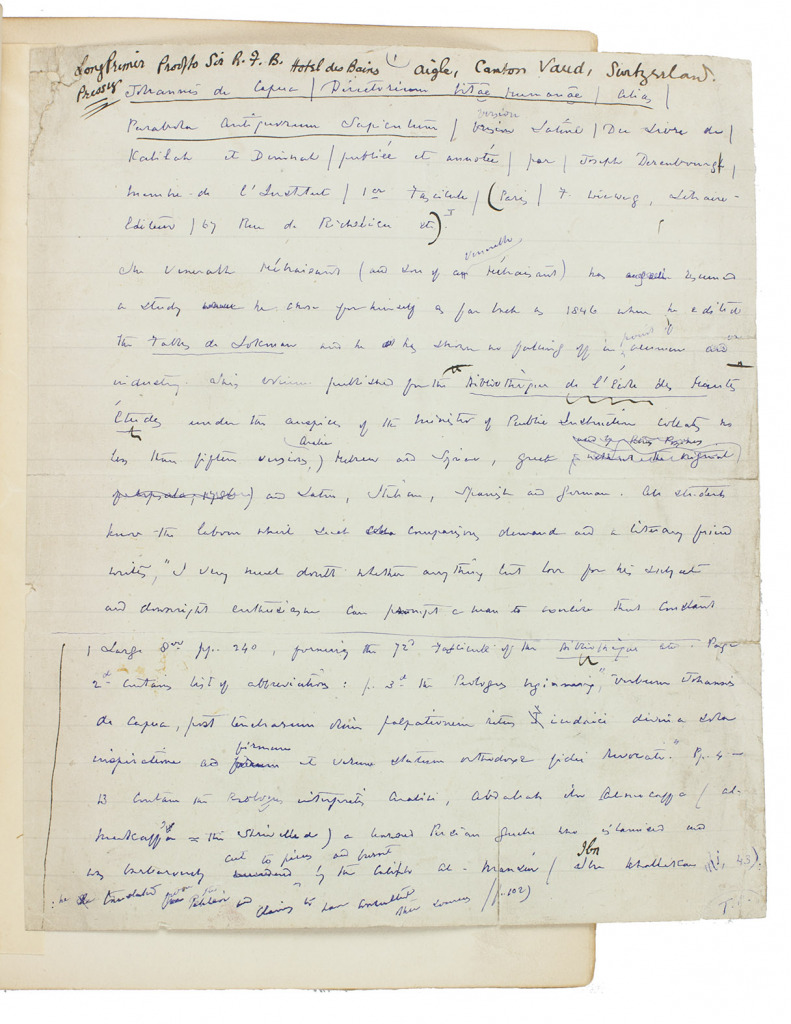 Long Primer Proof to Sir R. F. B. Hotel des Bains 1 Aigle, Canton Vaud, Switzerland.
Johannis de Capua | Directorium Vitæ humanæ | alias |
version
Parabola Antiquorum Sapientum | version Latine | Du Livre de |
Kalilah et Dimnah | publiée et annotée | par | Joseph Derenbourg |
membre de l'Institut | 1er Fascicule | (Paris | F. Vieweg, Libraire-
Editeur | 67 Rue de Richelieu etc)
venerable
The venerable Hebraisant (and son of a Hebraisant) has resumed
a study he chose for himself as far back as 1846 when he edited
point of
the Fables de Lokman and he has shown no falling off in acumen and
industry. This volume published for the Bibliothèque de l'École des Hautes
Études under the auspices of the Minister of Public Instruction collates no
Arabic
less than fifteen versions, Hebrew and Syriac, Greek
and Latin, Italian, Spanish and German. All students
know the labour which such comparisons demand and a literary friend
writes, "I very much doubt whether anything but love for his subject
and downright enthusiasm can prompt a man to exercise that constant
1 Large 8vo pp. 240, forming the 72d Fascicule of the Bibliothèque etc. Page
2d contains list of abbreviations: p. 3d the Prologus beginning, "Verbum Johannis
de Capua, post tenebrarum olim palpationem ritus judaici divina sola
firmum
inspiratione ad et verum statum orthodoxæ fidei revocati." Pp. 4 -
13 contain the Prologus interpretis Arabici, Abdallah ibn Almocaffa (al-
Mukaffá = the Shrivelled) a learned Persian Guebre who islamised and
cut to pieces and burnt
was barbarously by the Caliph al-Mansúr (Ibn Khallikan i, 43):
he translated from the Pehlevi and claims to have consulted other sources (p. 102)